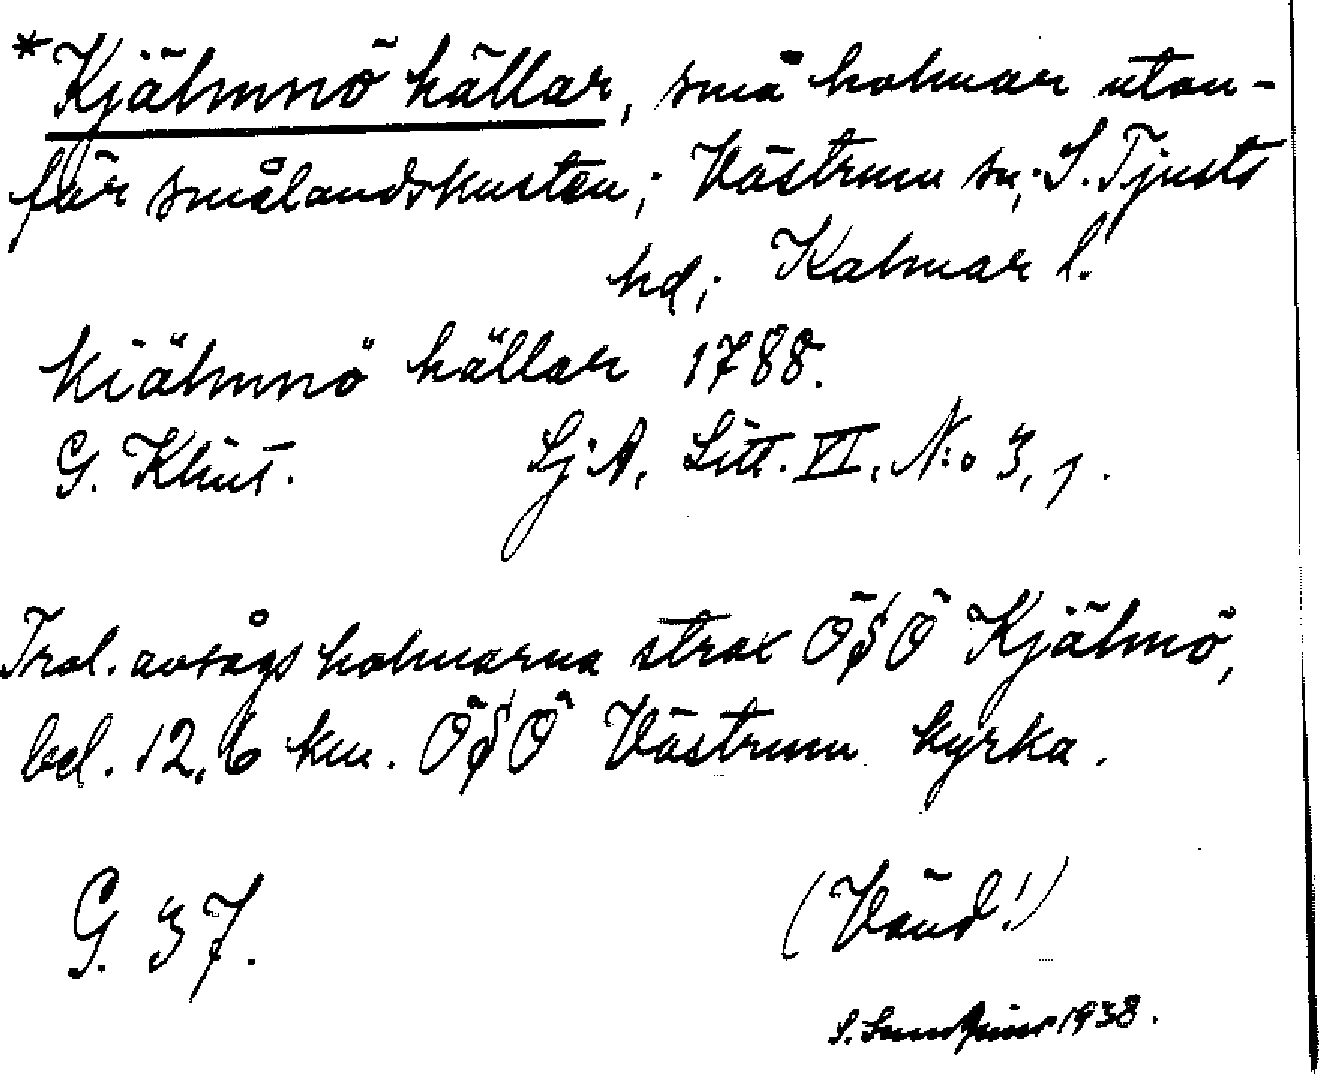 *Kjälmnö hällar, små holmar utan-
för smålandskusten; Västrum sn; S. Tjusts
hd; Kalmar l.
Kiälmnö hällar 1788.
G. Klint. Sj. A. Litt. VI. N:o 3, 1.
Trol. avsågs holmarna strax ÖSÖ Kjälmö,
bel. 12,6 km. ÖSÖ Västrum kyrka.
G. 37. (Vänd!)
S. 1938.